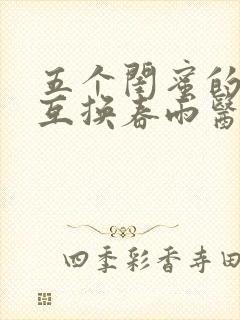 五个闺蜜的
互换春雨醫
四季彩香寺田